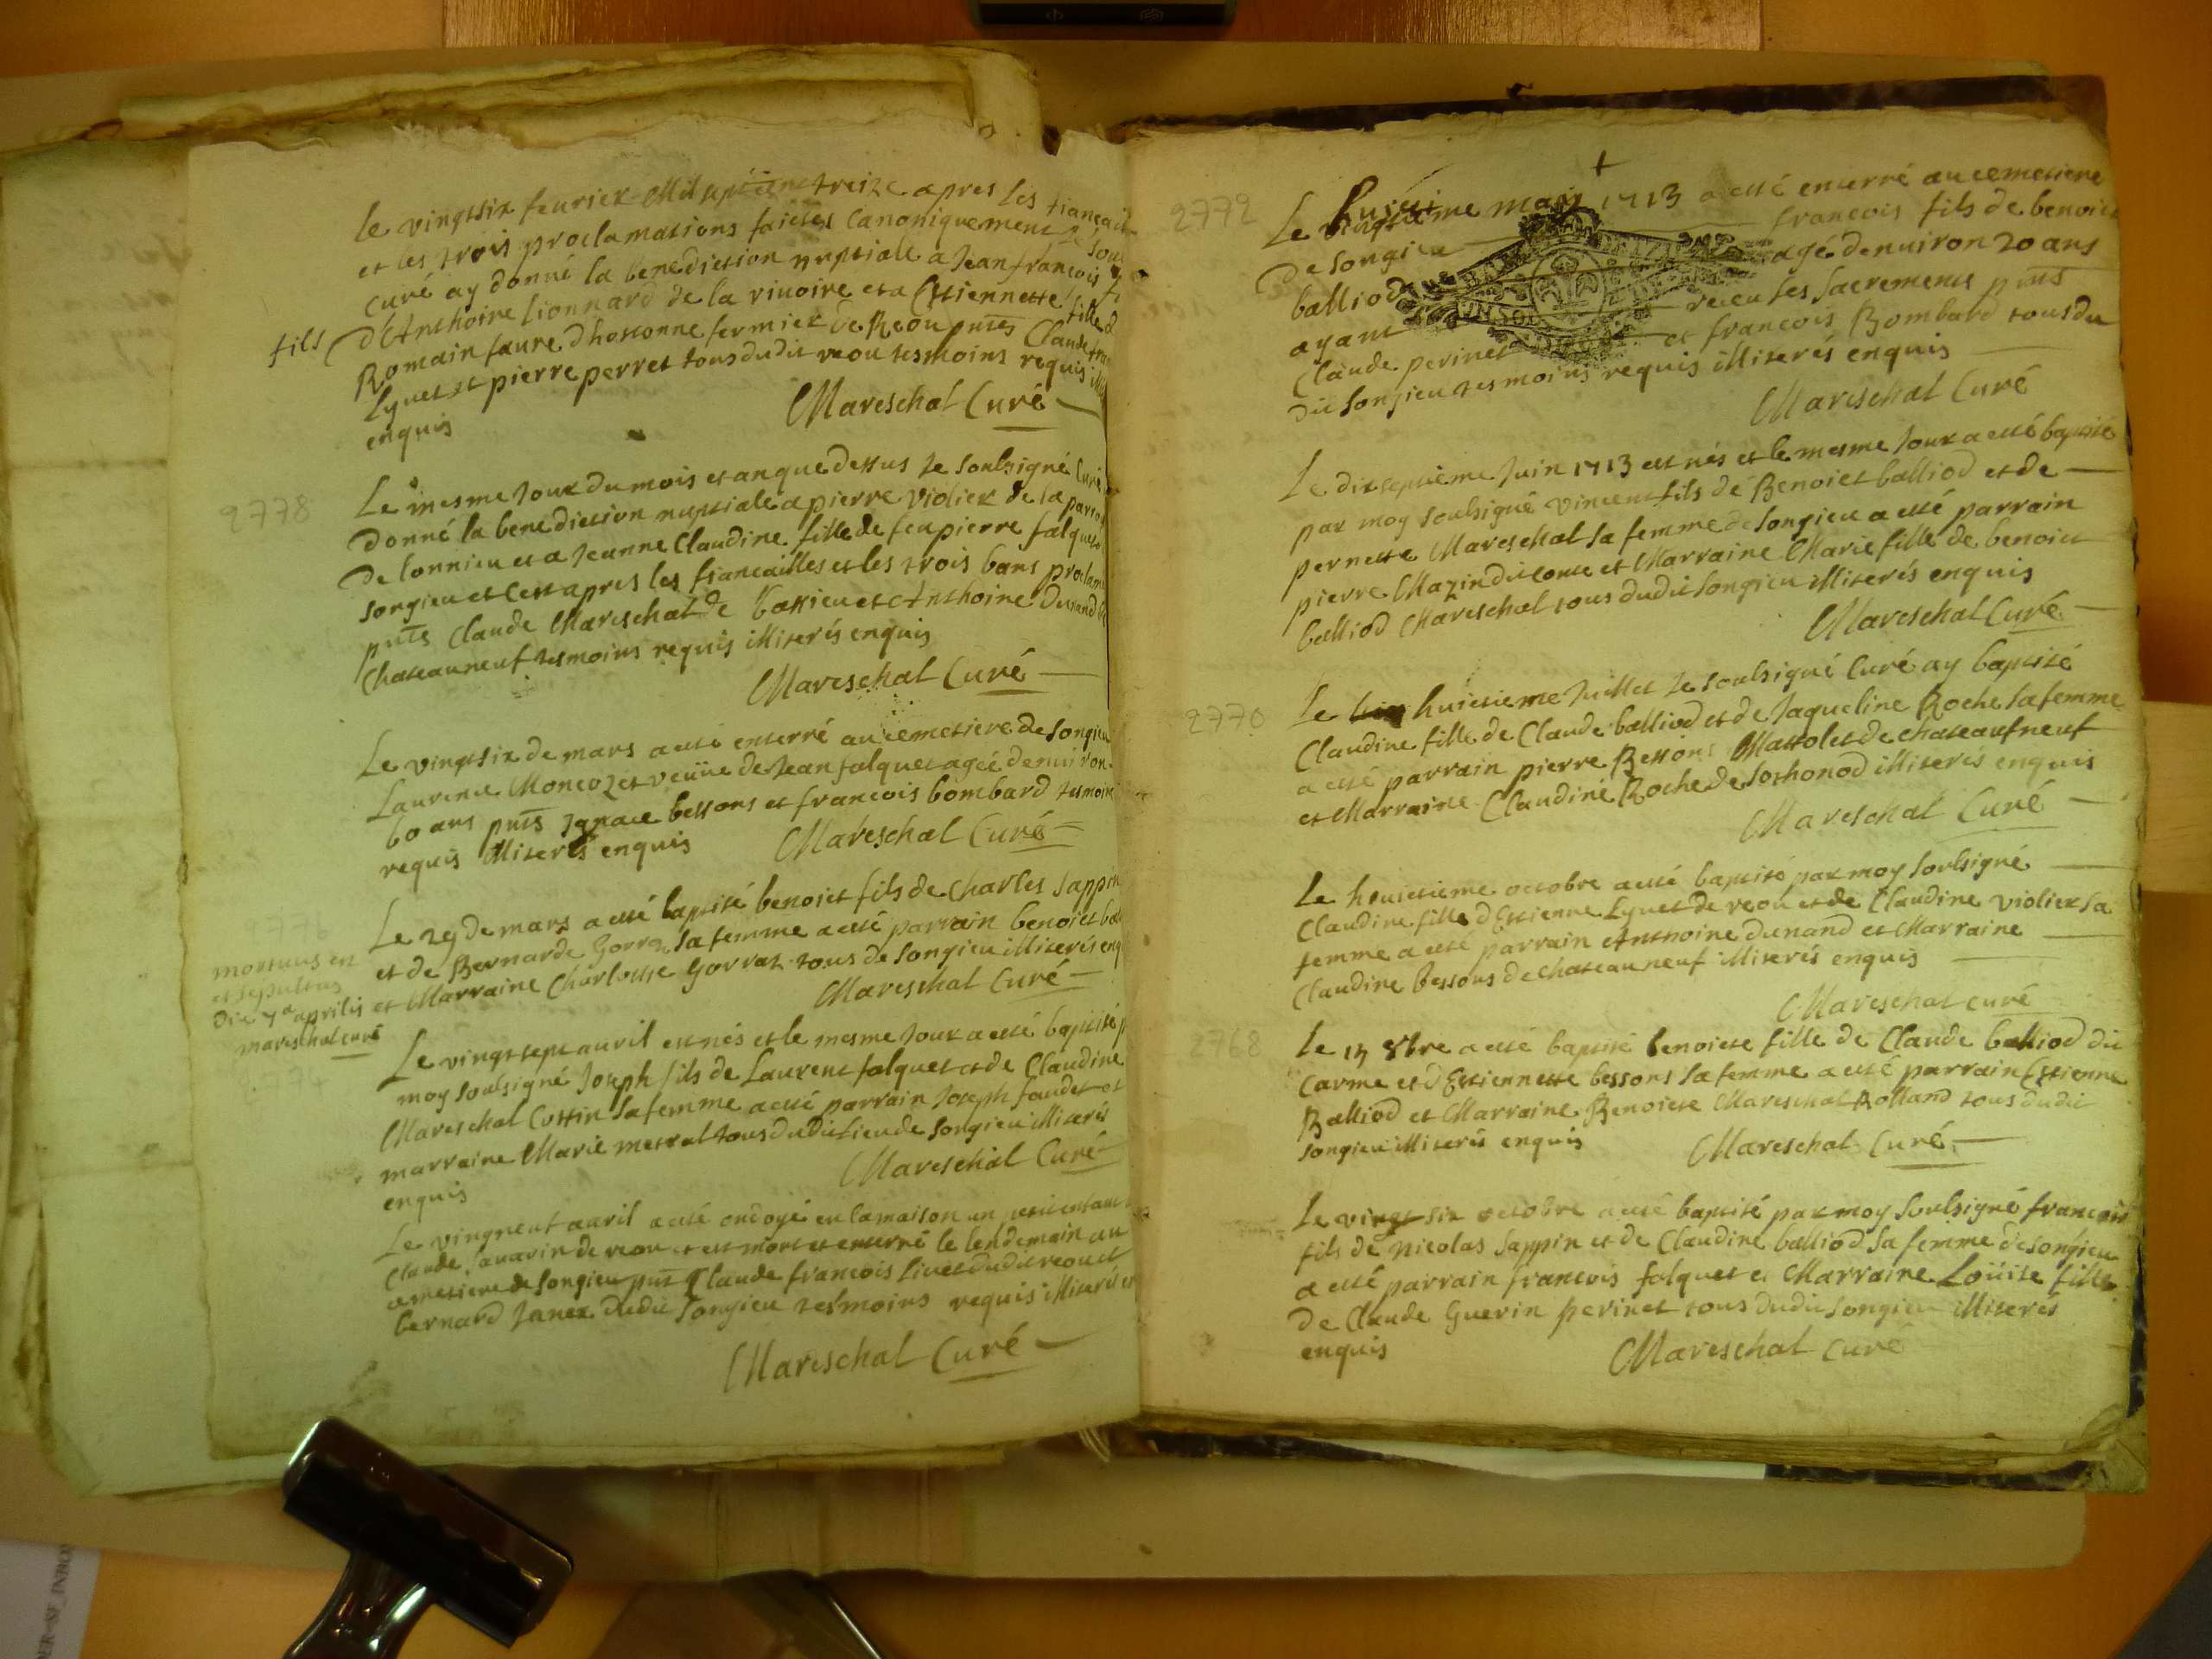 le vingtsix feurier Mil sept cent treize apres les fiancail
et les trois proclamations faictes Canoniquement Je sou
curé ay donné la benediction nuptiale a Jean françois
fils
d'Anthoine Lionnard de la riuoire et a Estiennette fille d
Romain faure d'hostonne fermier de Reou pnts Claude fran
Lyuet et pierre perret tous dudit reou tesmoins requis illi
enquis
Mareschal Curé
2778
Le mesme Jour du mois et an que dessus Je soubsigné Curé
donné la benediction nuptiale a pierre violier de la parro
de lonnieu et a Jeanne Claudine fille de feu pierre falquet
songieu et c'est apres les fiancailles et les trois bans proclam
pnts Claude Mareschal de bassieu et Anthoine Dunand de
Chateauneuf tesmoins requis illiterés enquis
Mareschal Curé
Le vingtsix de mars a esté enterré au cemetiere de songieu
Laurence Moncozet veuüe de Jean falquet agée denuiron
60 ans pnts Ignace bessons et francois bombard tesmoins
requis illiterés enquis
Mareschal Curé
Le 29 de mars a esté baptisé benoiet fils de Charles Sappin
et de Bernarde Gorraz sa femme a esté parrain benoiet bal
et Marraine Charlotte Gorraz tous de songieu illiterés enq
Mareschal Curé
mortuus est
et sepultus
die 7a aprilis
mareschal curé
Le vingtsept auril est nés et le mesme Jour a esté baptisé p
moy soubsigné Joseph fils de Laurent falquet et de Claudine
Mareschal Cottin sa femme a esté parrain Joseph faudet et
marraine Marie mestral tous dudit lieu de songieu illiterés
enquis
Mareschal Curé
Le vingneuf auril a esté ondoyé en la maison un petit enfant
Claude sauarin de reou et est mort et enterré le lendemain au
cemetiere de songieu pnt Claude francois liuet dudit reou et
bernard Janex dudit songieu tesmoins requis illiterés en
Mareschal Curé
2772
Le huictieme may 1713 a esté enterré au cemetiere
de songieu francois fils de benoiet
balliod agé denuiron 20 ans
ayant receu les sacrements pnts
UN SOL
Claude perinet et francois Bombard tous du
dit songieu tesmoins requis illiterés enquis
Mareschal Curé
Le dixseptieme Juin 1713 est nés et le mesme Jour a esté baptisé
par moy soubsigné vincent fils de Benoiet balliod et de
pernette Mareschal sa femme de songieu a esté parrain
pierre Mazin dit conte et Marraine Marie fille de benoiet
balliod Mareschal tous dudit songieu illiterés enquis
Mareschal Curé
2770
Le huictieme Juillet Je soubsigné Curé ay baptisé
Claudine fille de Claude balliod et de Jaqueline Roche sa femme
a esté parrain pierre Bessons Massolet de chateaufneuf
et Marraine Claudine Roche de sothonod illiterés enquis
Mareschal Curé
Le houictieme octobre a esté baptisé par moy soubsigné
Claudine fille d'Estienne Lyuet de reou et de Claudine violier sa
femme a esté parrain Anthoine dunand et Marraine
Claudine bessons de chateauneuf illiterés enquis
Mareschal curé
2768
Le 13 8bre a esté baptisé benoiete fille de Claude balliod dit
Carme et d'Estiennette bessons sa femme a esté parrain Estienne
Balliod et Marraine Benoiete Mareschal Rolland tous dudit
songieu illiterés enquis
Mareschal Curé
Le vingt six octobre a esté baptisé par moy soubsigné francois
fils de Nicolas Sappin et de Claudine balliod sa femme de songieu
a esté parrain francois falquet et Marraine Loüise fille
de Claude Guerin perinet tous dudit songieu illiteres
enquis
Mareschal curé